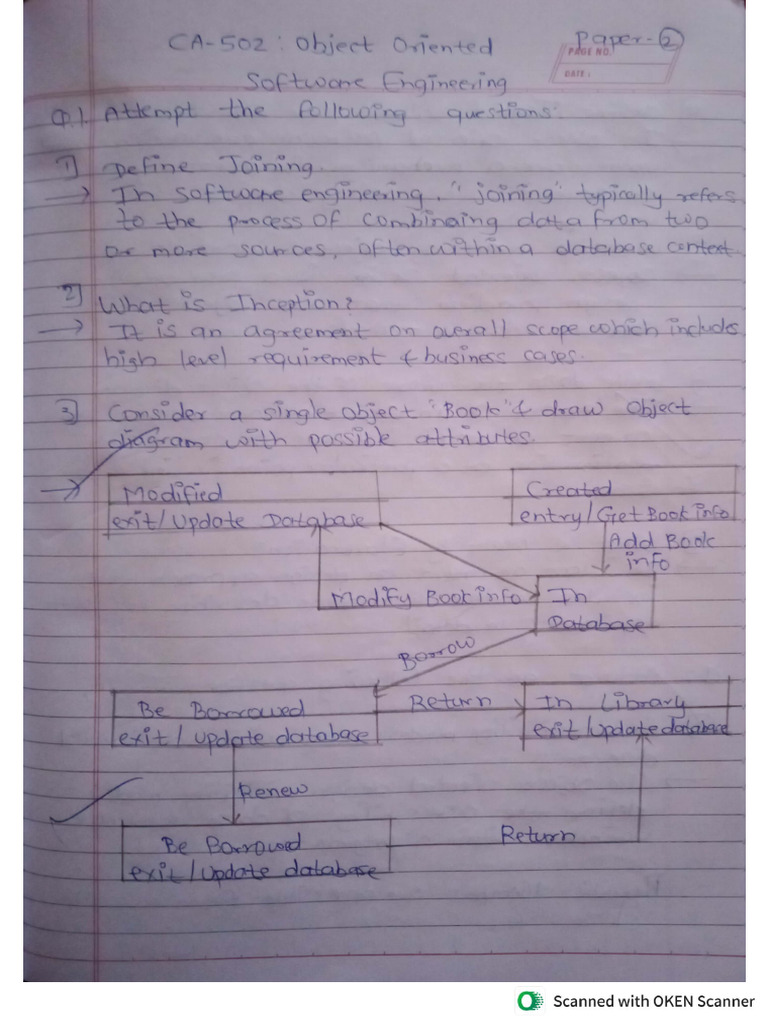 CA-502: Object Oriented
Paper-②
PAGE NO.
DATE:
Software Engineering
Q.1. Attempt the following questions.
1] Define Joining.
→ In software engineering, "joining" typically refers
to the process of combinaing data from two
or more sources, often within a database context
2] What is Inception?
→ It is an agreement on overall scope which includes
high level requirement & business cases.
3] Consider a single object "Book" & draw object
diagram with possible attributes.
→ Modified
exit/Update Database
Created
entry/Get Book info
Add Book
info
Modify Book info
In
Database
Borrow
Be Borrowed
exit/update database
Return
In Library
exit/update database
Renew
Be Borrowed
exit/update database
Return
Scanned with OKEN Scanner